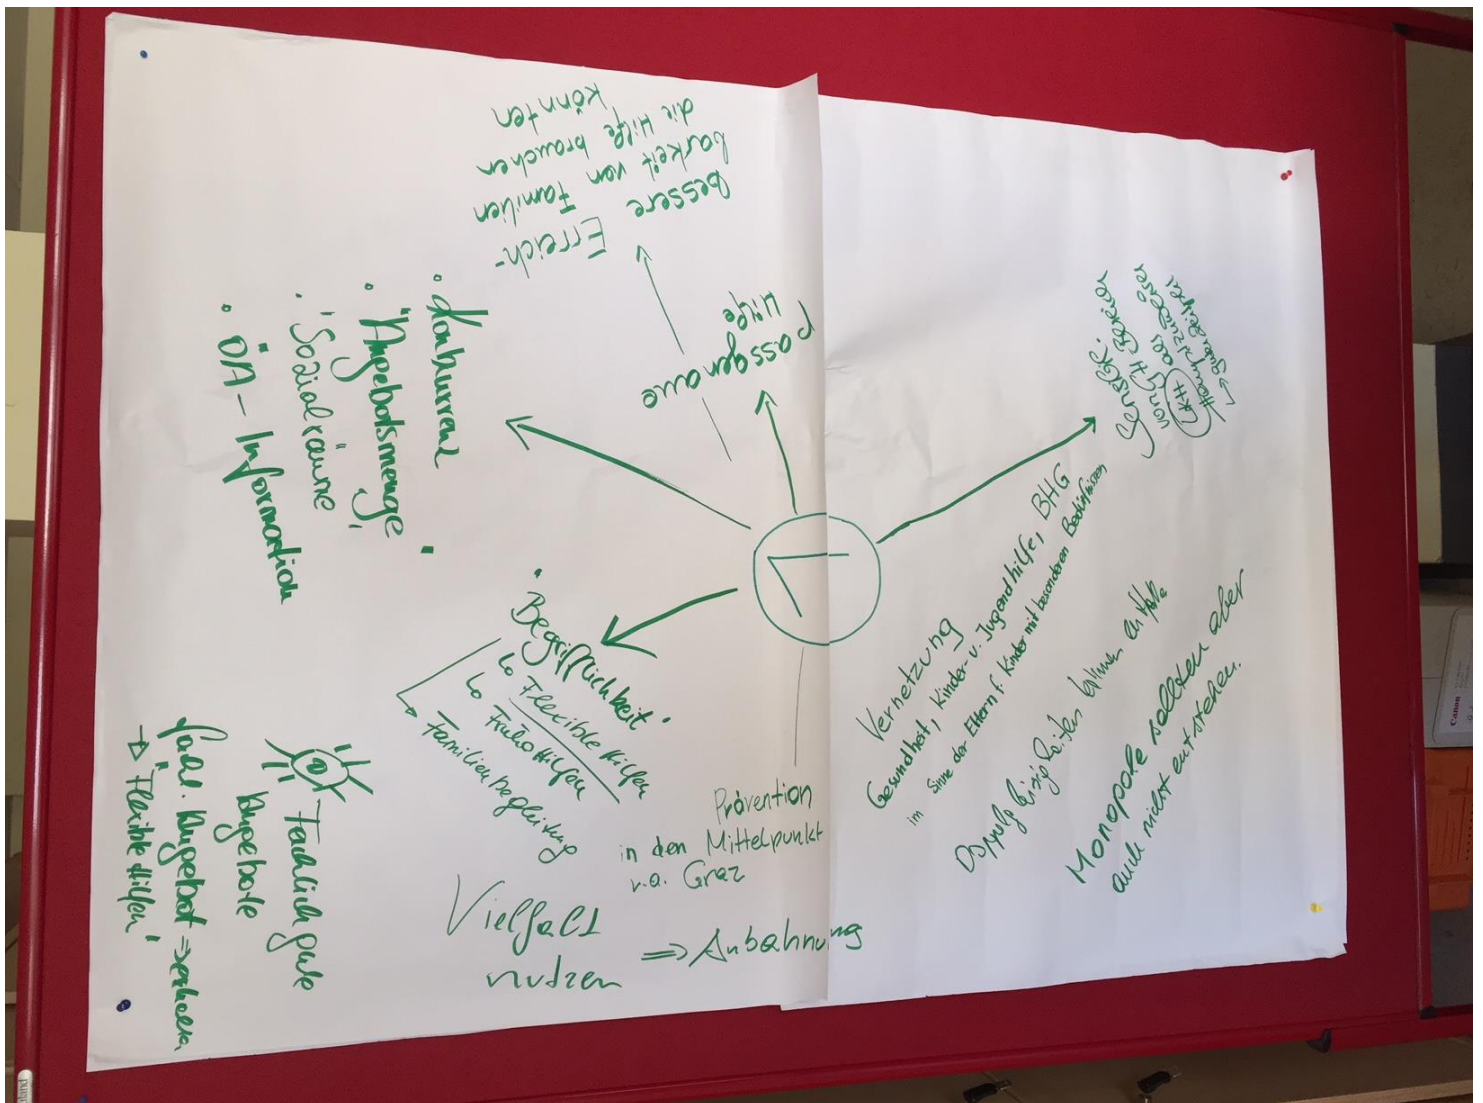 Bessere Erreich-
barkeit von Familien
die Hilfe brauchen
könnten
passgenaue
Hilfe
• Konkurrenz
• "Angebotsmenge"
• "Sozialräume"
• ÖA - Information
• "Begrifflichkeit"
↳ Flexible Hilfen
↳ Frühe Hilfen
→ Familienbegleitung
Fachlich gute
Angebote
Angebot =>
→ "Flexible Hilfen"
Prävention
in den Mittelpunkt
v.a. Graz
Vielfalt
nutzen
=> Anbahnung
von
KH
Vernetzung
Gesundheit, Kinder- u. Jugendhilfe, BHG
im Sinne der Eltern f. Kinder mit besonderen Bedürfnissen
können
Monopole sollten aber
auch nicht entstehen.
Canon